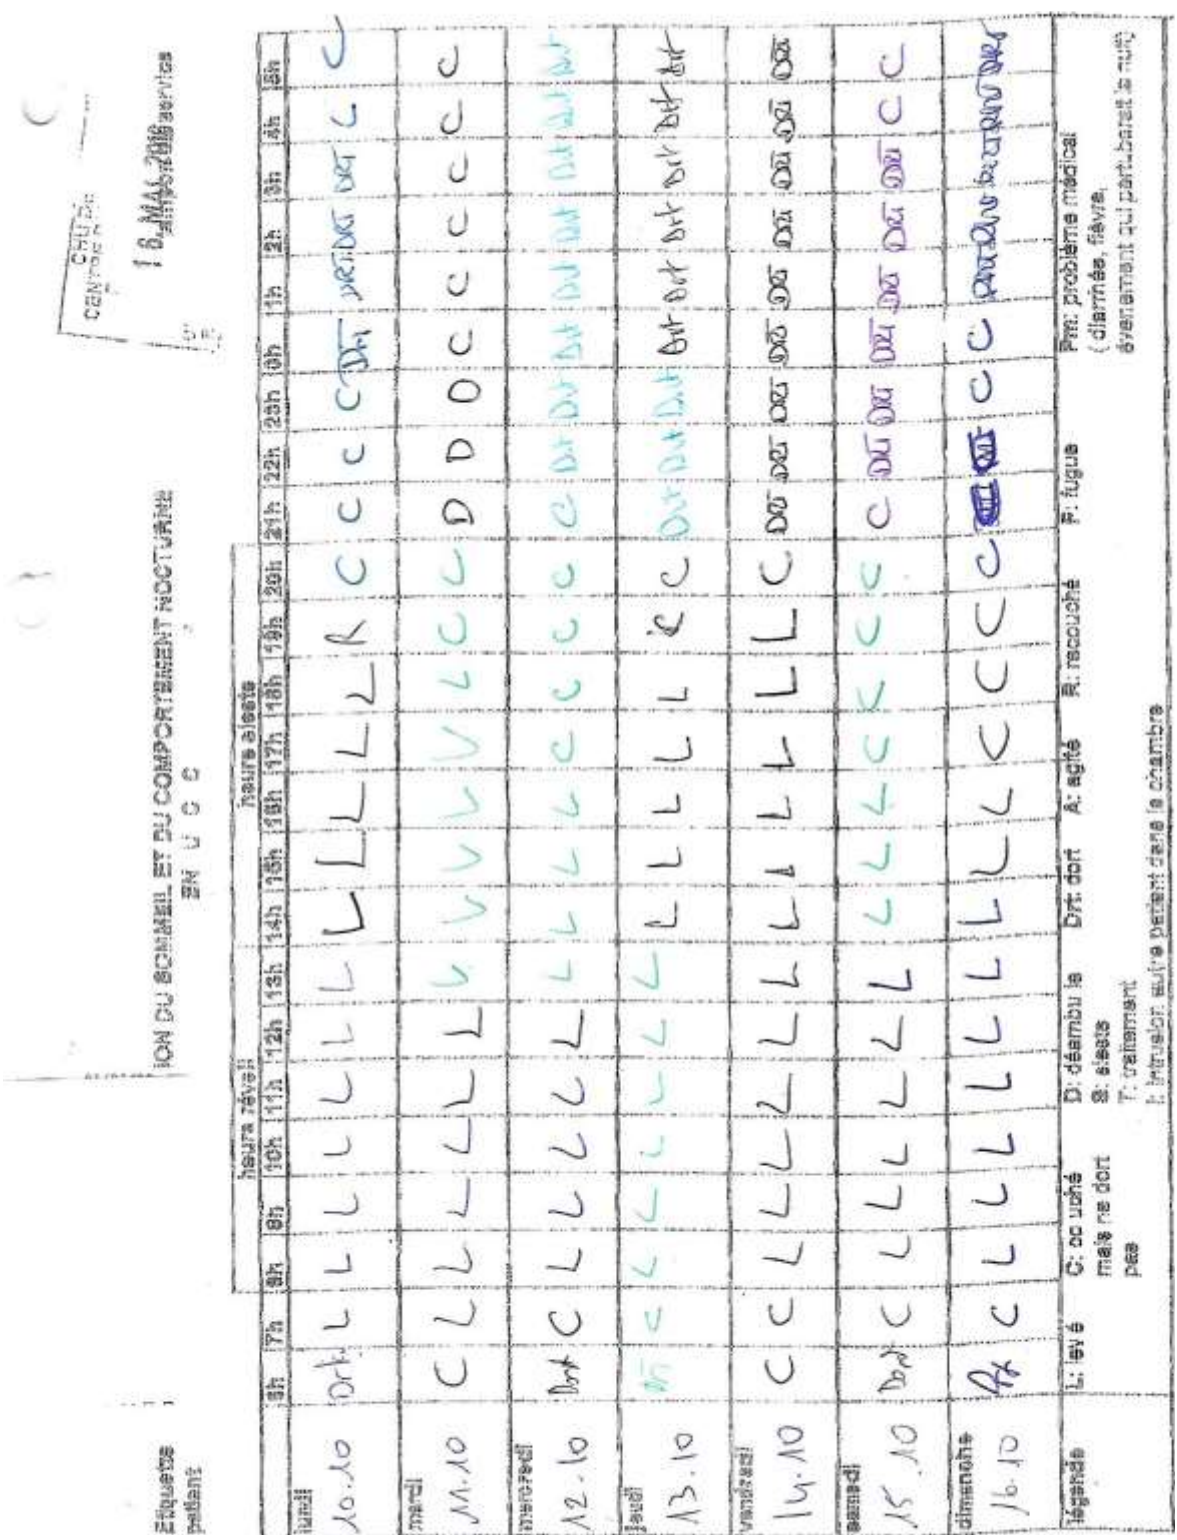 CHU DE
16 MAI 2016
Etiquette
patient
ION DU SOMMEIL ET DU COMPORTEMENT NOCTURNE
EN U C C
heure réveil heure sieste
6h 7h 8h 9h 10h 11h 12h 13h 14h 15h 16h 17h 18h 19h 20h 21h 22h 23h 0h 1h 2h 3h 4h 5h
lundi
10.10 Drt L L L L L L L L L L L L R C C C C Drt DRT DRT DRT L C
mardi
11.10 C L L L L L L V V V V V L C C D D D C C C C C C
mercredi
12.10 Dort C L L L L L L L L L C C C C C Drt Drt Drt Drt Drt Drt Drt Drt
jeudi
13.10 Drt C L L L L L L L L L L L C Drt Drt Drt Drt Drt Drt Drt Drt Drt
vendredi
14.10 C C L L L L L L L L L L L L C DRT DRT DRT DRT DRT DRT DRT DRT DRT
samedi
15.10 Dort C L L L L L L L L L C C C C DRT DRT DRT DRT DRT DRT C C
dimanche
16.10 C L L L L L L L L L C C C C DRT C C
légende
L: levé
C: couché
mais ne dort
pas
D: déambule
S: sieste
T: traitement
I: intrusion autre patient dans la chambre
Drt: dort
A: agité
R: recouché
F: fugue
Pm: problème médical
( diarrhée, fièvre,
évenement qui perturberait la nuit)